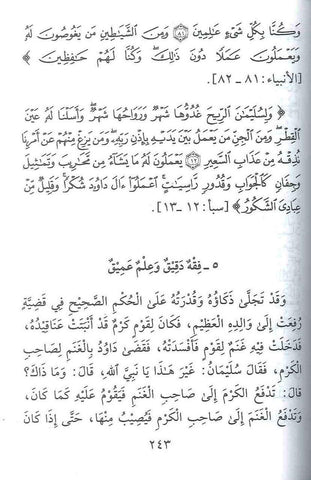 وَكُنَّا بِكُلِّ شَىْءٍ عَٰلِمِينَ ۝٨١ وَمِنَ ٱلشَّيَٰطِينِ مَن يَغُوصُونَ لَهُۥ
وَيَعْمَلُونَ عَمَلًا دُونَ ذَٰلِكَ ۖ وَكُنَّا لَهُمْ حَٰفِظِينَ ﴾
[الأنبياء: ٨١ - ٨٢].
﴿ وَلِسُلَيْمَٰنَ ٱلرِّيحَ غُدُوُّهَا شَهْرٌ وَرَوَاحُهَا شَهْرٌ ۖ وَأَسَلْنَا لَهُۥ عَيْنَ
ٱلْقِطْرِ ۖ وَمِنَ ٱلْجِنِّ مَن يَعْمَلُ بَيْنَ يَدَيْهِ بِإِذْنِ رَبِّهِۦ ۖ وَمَن يَزِغْ مِنْهُمْ عَنْ أَمْرِنَا
نُذِقْهُ مِنْ عَذَابِ ٱلسَّعِيرِ ۝١٢ يَعْمَلُونَ لَهُۥ مَا يَشَآءُ مِن مَّحَٰرِيبَ وَتَمَٰثِيلَ
وَجِفَانٍ كَٱلْجَوَابِ وَقُدُورٍ رَّاسِيَٰتٍ ۚ ٱعْمَلُوٓا۟ ءَالَ دَاوُۥدَ شُكْرًا ۚ وَقَلِيلٌ مِّنْ
عِبَادِىَ ٱلشَّكُورُ ﴾ [سبأ: ١٢ - ١٣].
٥ - فِقْهٌ دَقِيقٌ وَعِلْمٌ عَمِيقٌ
وَقَدْ تَجَلَّىٰ ذَكَاؤُهُ وَقُدْرَتُهُ عَلَىٰ الْحُكْمِ الصَّحِيحِ فِي قَضِيَّةٍ
رُفِعَتْ إِلَىٰ وَالِدِهِ الْعَظِيمِ، فَكَانَ لِقَوْمٍ كَرْمٌ قَدْ أَنْبَتَتْ عَنَاقِيدُهُ،
فَدَخَلَتْ فِيهِ غَنَمٌ لِقَوْمٍ فَأَفْسَدَتْهُ، فَقَضَىٰ دَاوُدُ بِالْغَنَمِ لِصَاحِبِ
الْكَرْمِ، فَقَالَ سُلَيْمَانُ: غَيْرُ هَـٰذَا يَا نَبِيَّ اللهِ، قَالَ: وَمَا ذَاكَ؟
قَالَ: تَدْفَعُ الْكَرْمَ إِلَىٰ صَاحِبِ الْغَنَمِ فَيَقُومُ عَلَيْهِ كَمَا كَانَ،
وَتَدْفَعُ الْغَنَمَ إِلَىٰ صَاحِبِ الْكَرْمِ فَيُصِيبُ مِنْهَا، حَتَّىٰ إِذَا كَانَ
٢٤٣